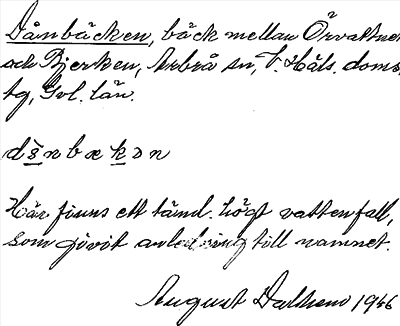 Dånbäcken, bäck mellan Örvattnet
och Bjerken, Arbrå sn, V. Häls. doms.
tg, Gvl. län.
d s̊ n b æ k ɔ n
Här finns ett tämd. högt vattenfall,
som givit anledning till namnet.
August Dalhem 1946